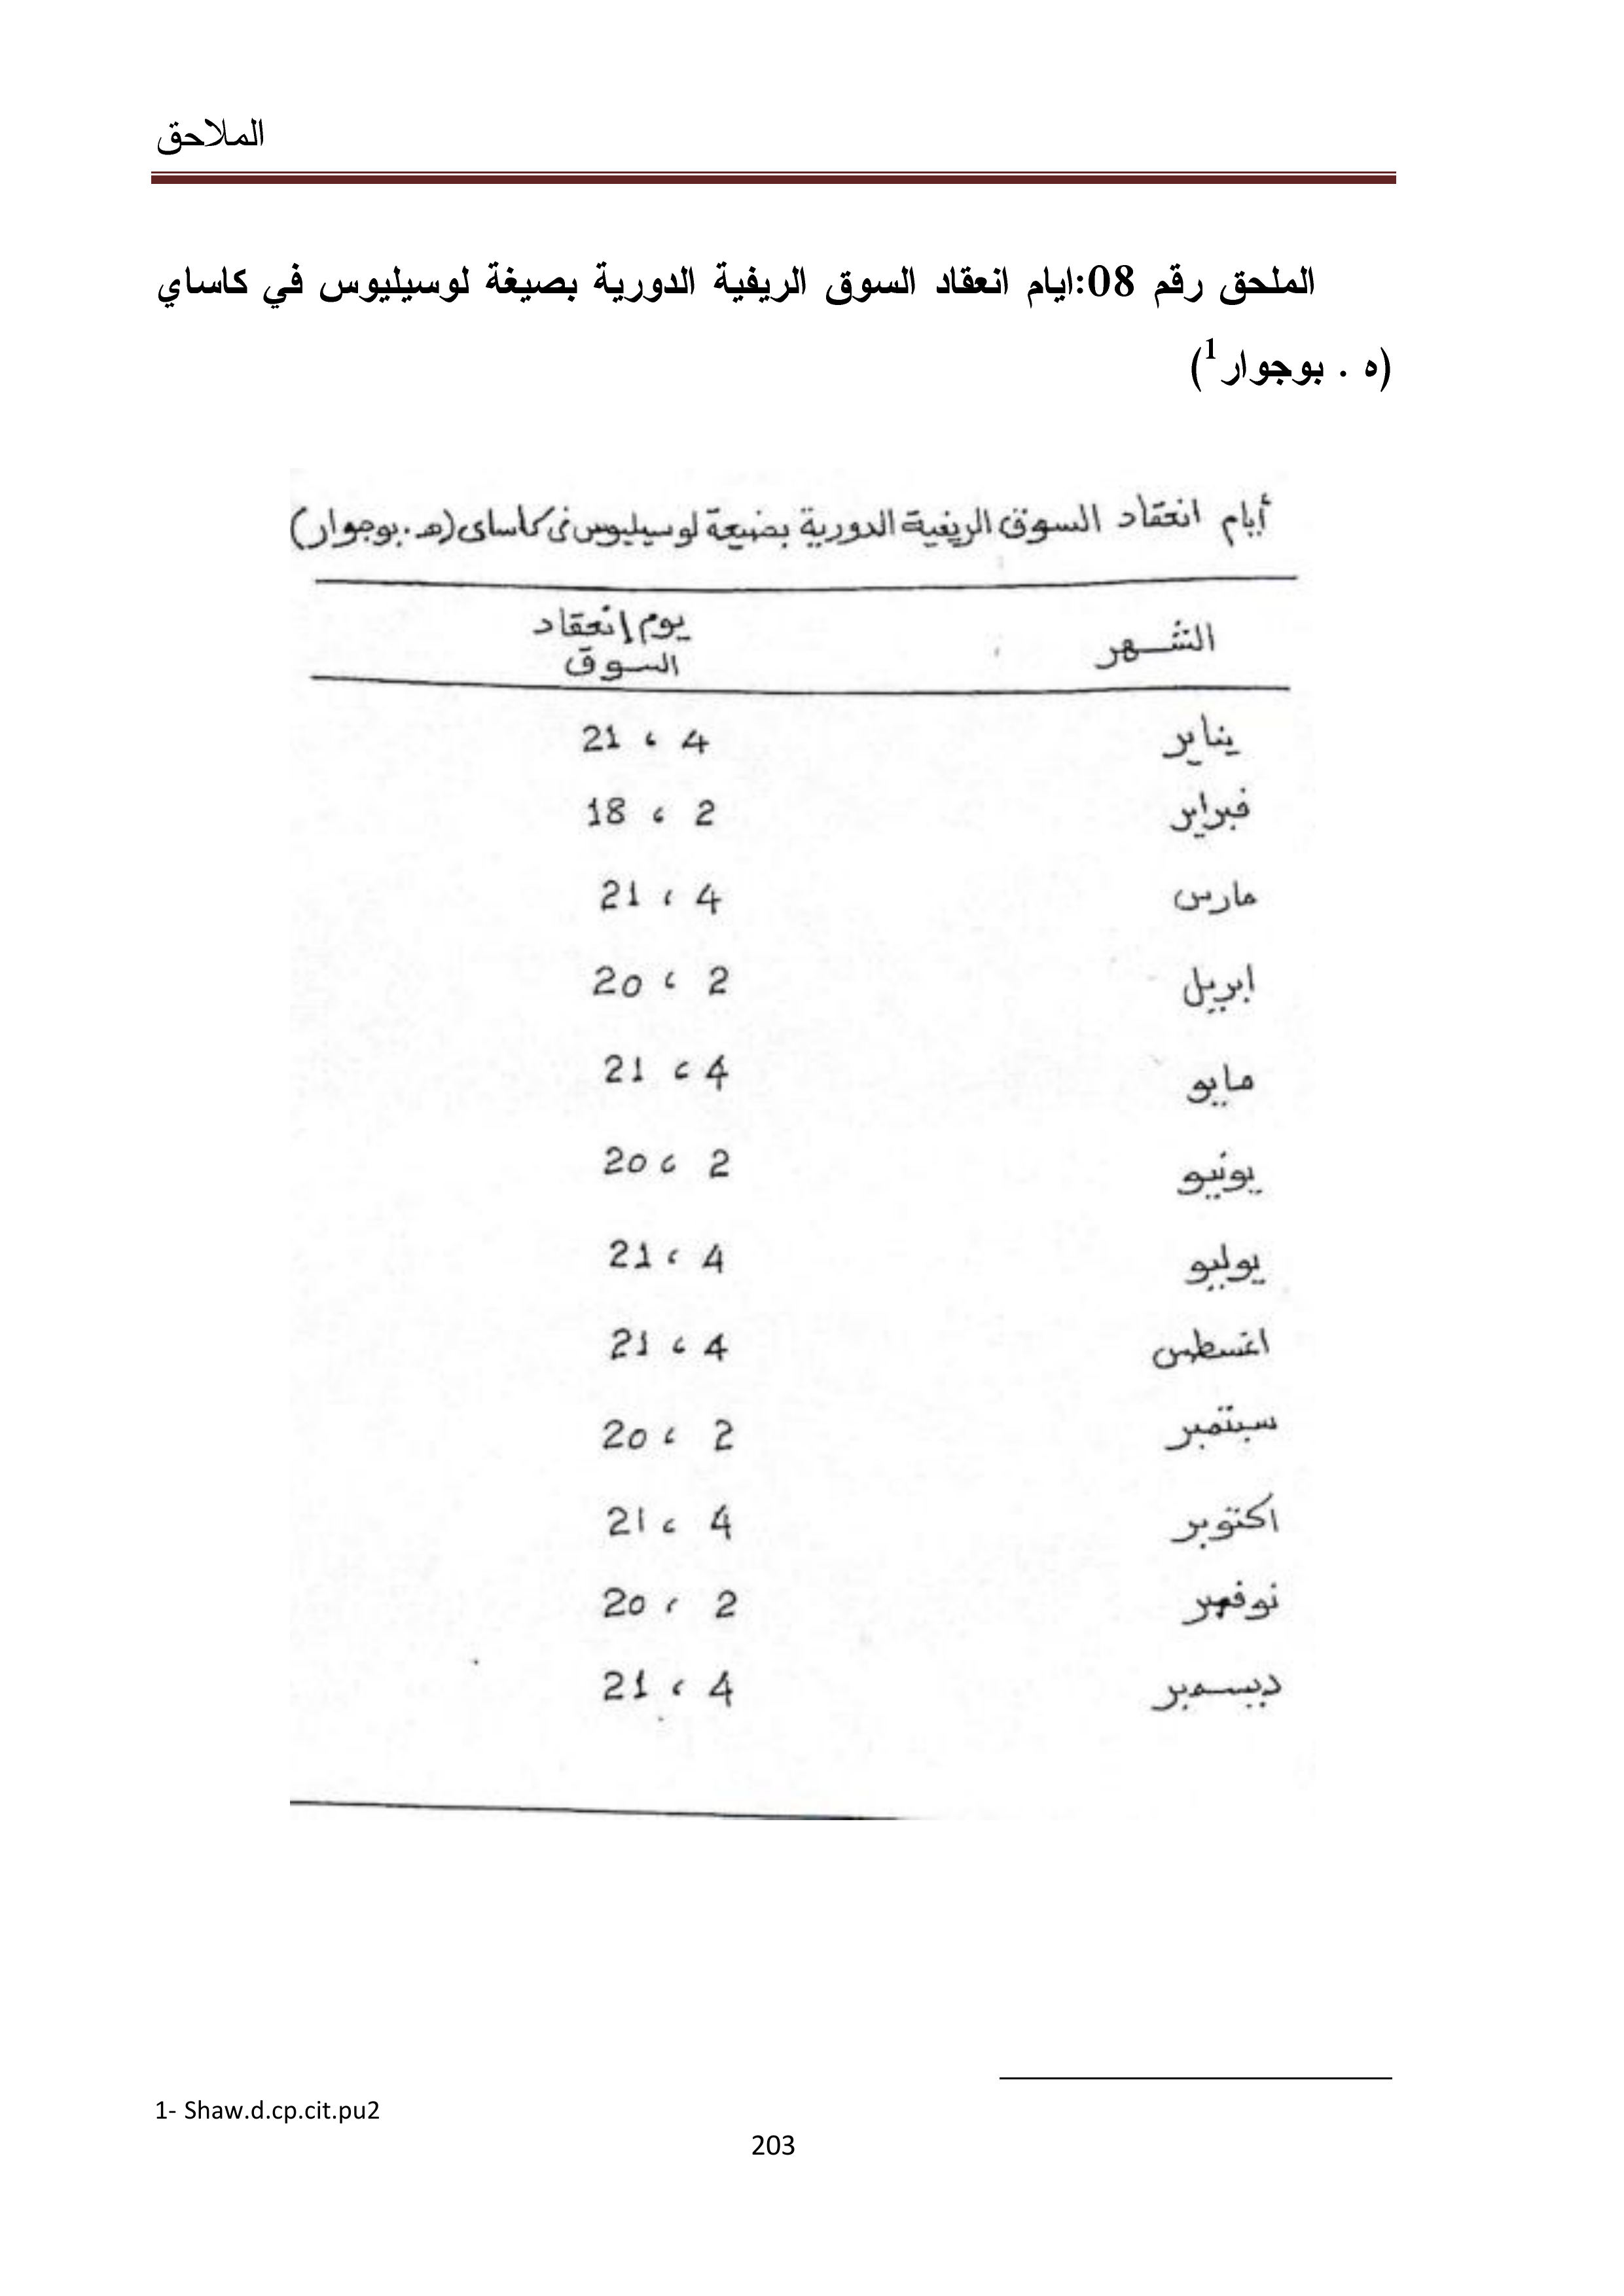 الملاحق
الملحق رقم 08:ايام انعقاد السوق الريفية الدورية بصيغة لوسيليوس في كاساي
(ه . بوجوار1)
أيام انعقاد السوق الريفية الدورية بضيعة لوسيليوس فى كاساى (هـ.بوجوار)
الشهر يوم إنعقاد
السوق
يناير 4 ، 21
فبراير 2 ، 18
مارس 4 ، 21
ابريل 2 ، 20
مايو 4 ، 21
يونيو 2 ، 20
يوليو 4 ، 21
اغسطس 4 ، 21
سبتمبر 2 ، 20
اكتوبر 4 ، 21
نوفمبر 2 ، 20
ديسمبر 4 ، 21
1- Shaw.d.cp.cit.pu2
203